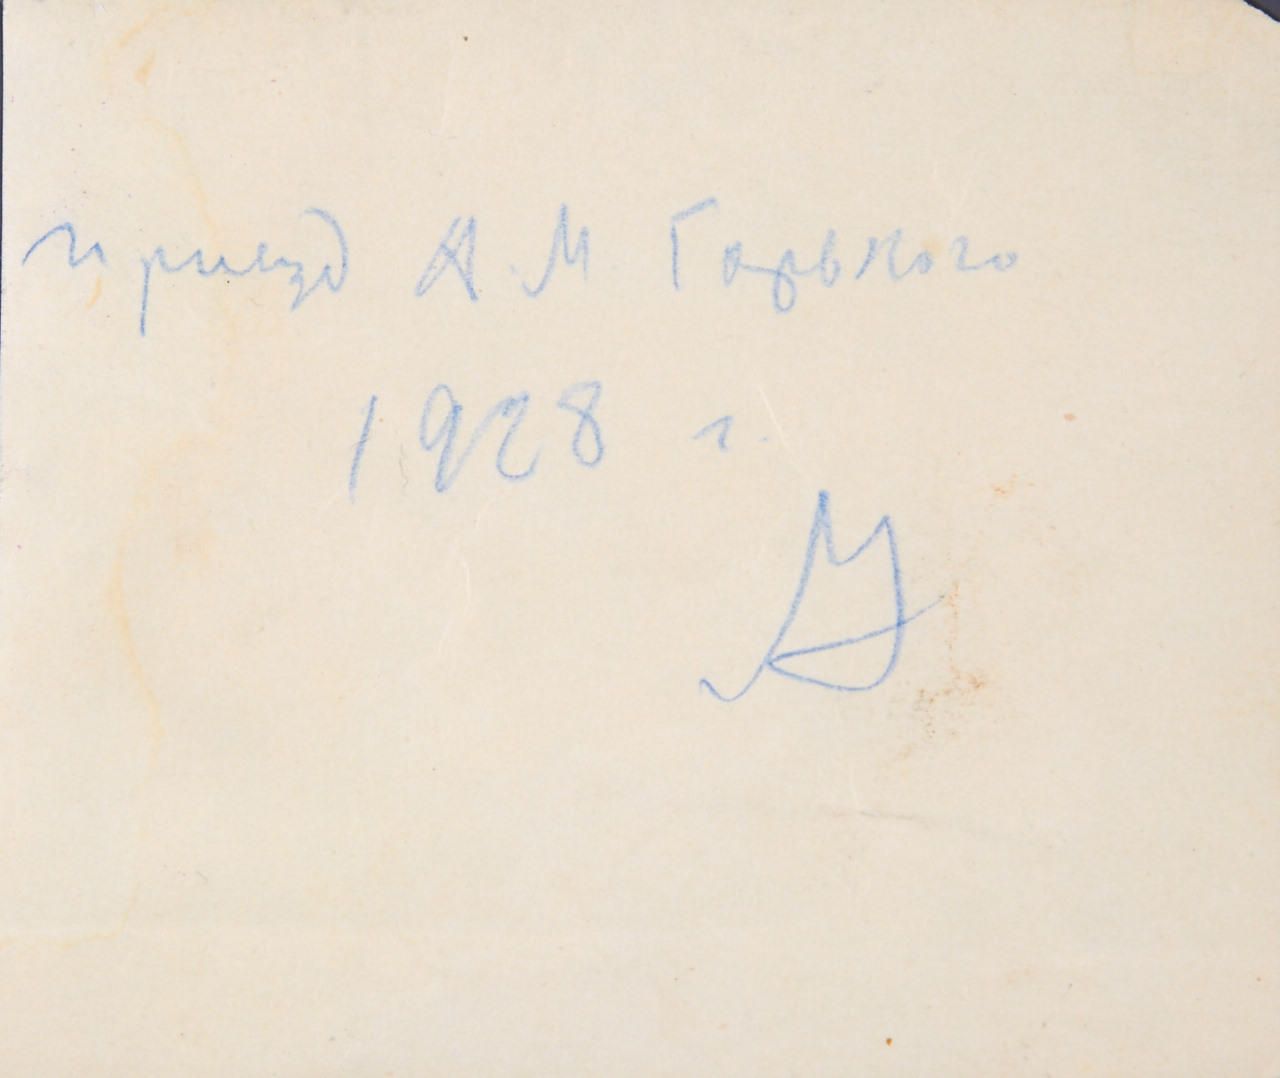 приезд А.М. Горького
1928 г.